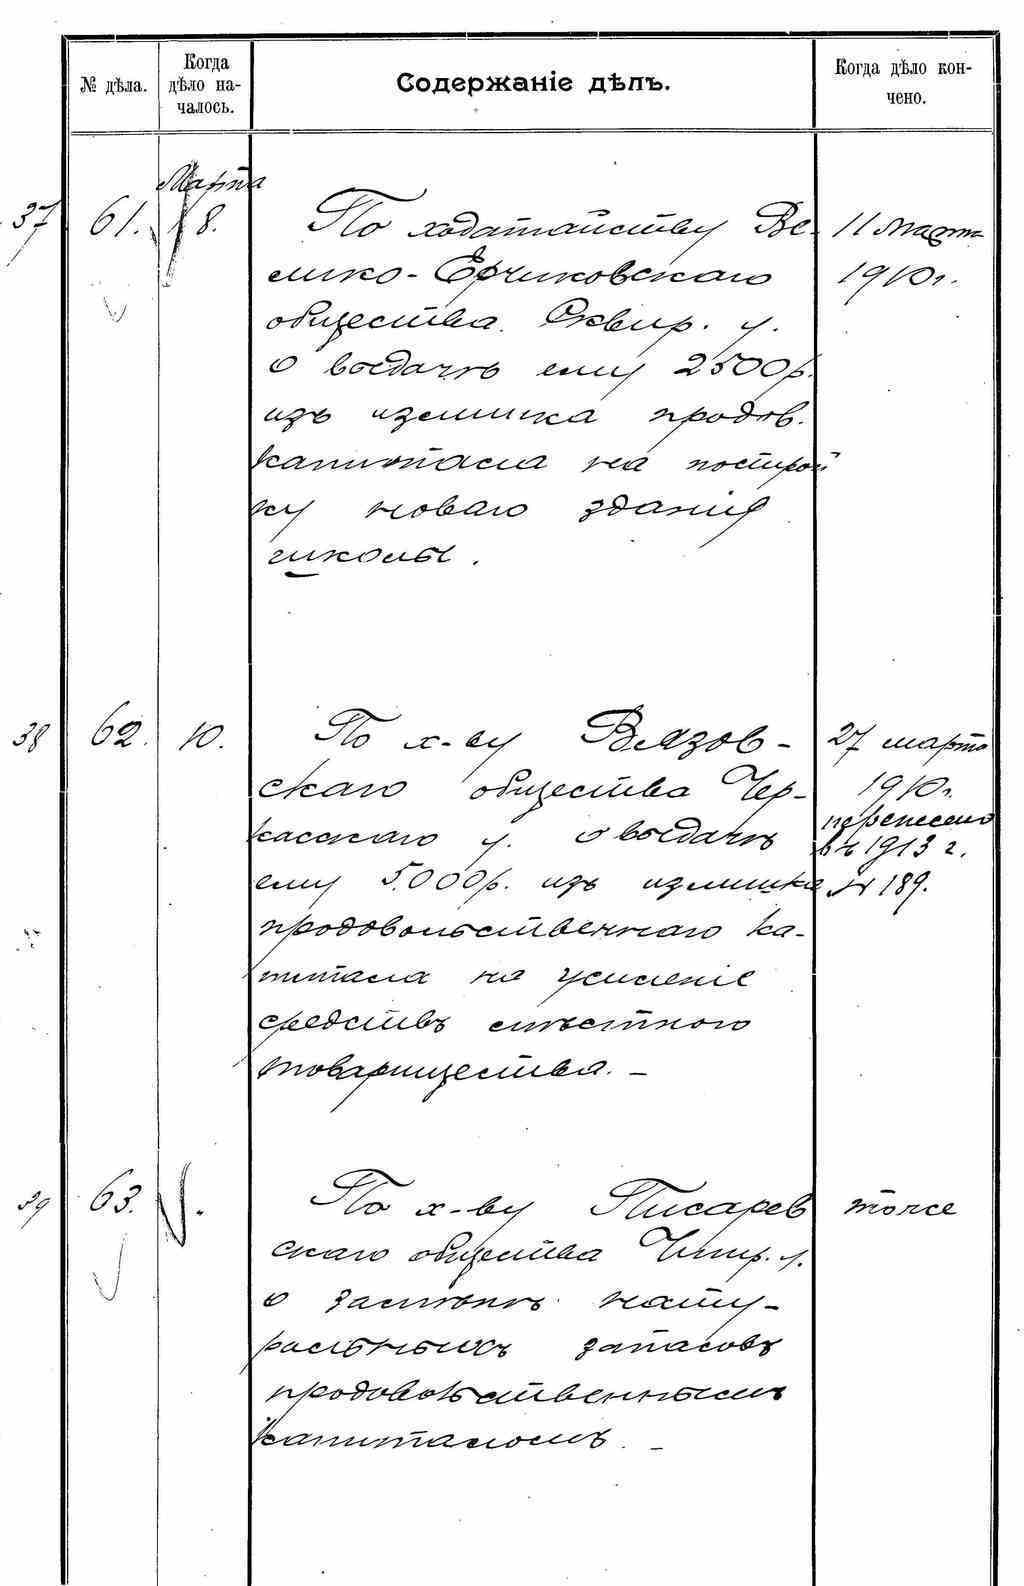 № дѣла.
Когда
дѣло на-
чалось.
Содержаніе дѣлъ.
Когда дѣло кон-
чено.
Марта
37
61.
8.
По ходатайству Ве-
лико-Ерчиковскаго
общества Сквир. у.
о выдачѣ ему 2500р.
изъ излишка продов.
капитала на построй
ку новаго зданія
школы.
11 марта
1910г.
38
62.
10.
По х-ву Вязов-
скаго общества Чер-
касскаго у. о выдачѣ
ему 5.000р. изъ излишка
продовольственнаго ка-
питала на усиленіе
средствъ мѣстного
товарищества. –
27 марта
1910г.
перенесено
въ 1913 г.
№ 189.
39
63.
По х-ву Писарев
скаго общества Чигир. у.
о замѣнѣ нату-
ральныхъ запасовъ
продовольственнымъ
капиталомъ. –
тоже